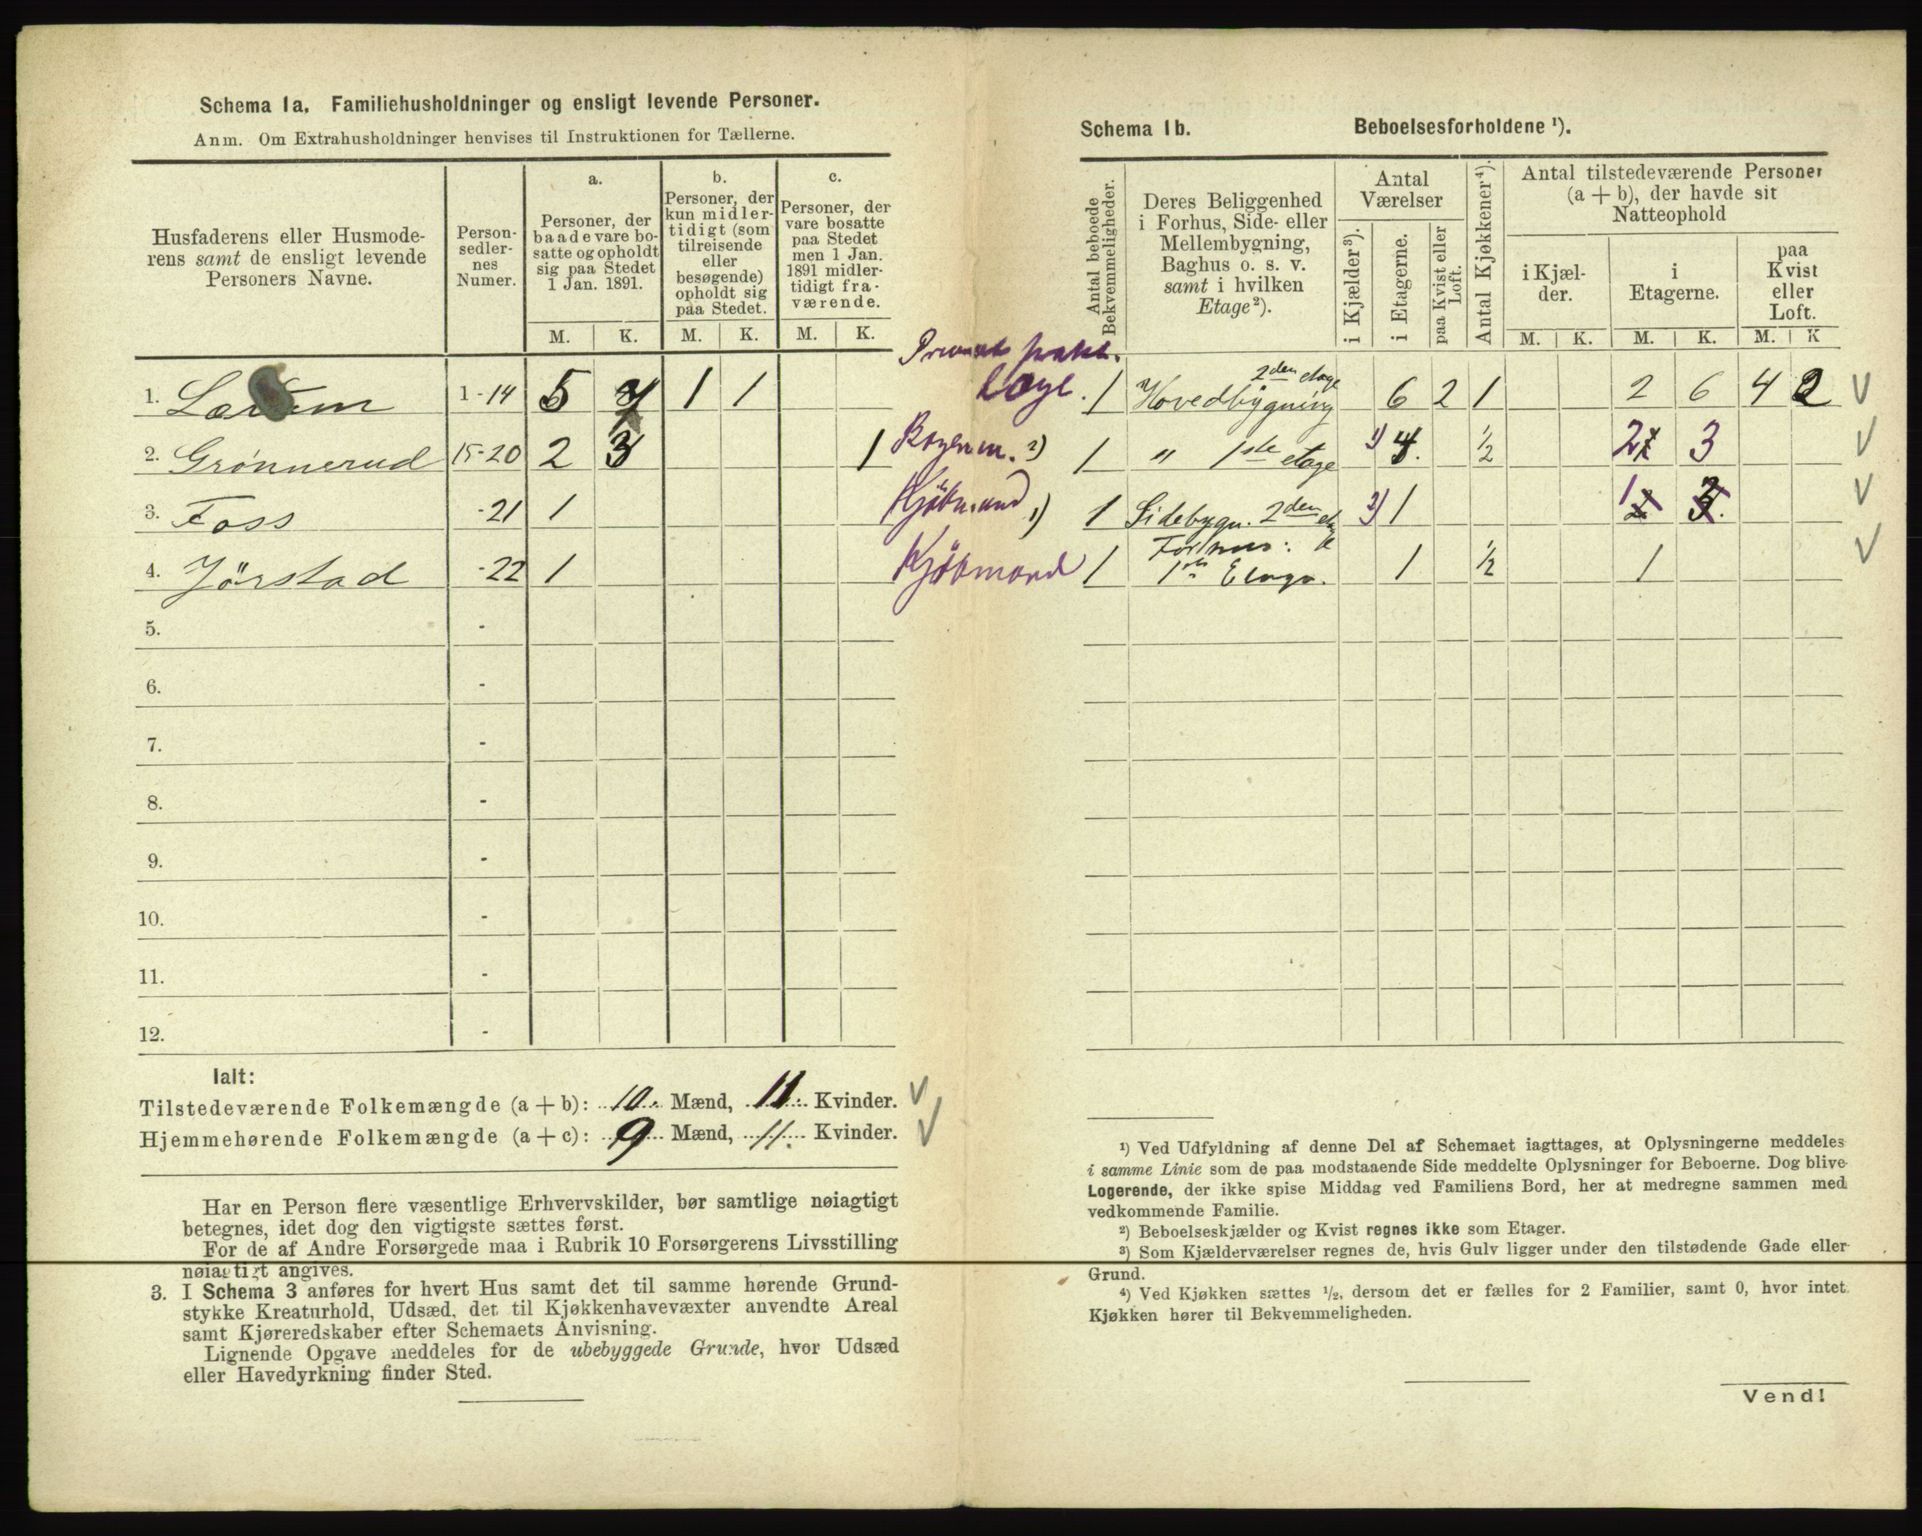 Schema 1a. Familiehusholdninger og ensligt levende Personer.
Anm. Om Extrahusholdninger henvises til Instruktionen for Tællerne.
Husfaderens eller Husmode-
rens samt de ensligt levende
Personers Navne.
Person-
sedler-
nes
Numer.
a.
Personer, der
baade vare bo-
satte og opholdt
sig paa Stedet
1 Jan. 1891.
b.
Personer, der
kun midler-
tidigt (som
tilreisende
eller
besøgende)
opholdt sig
paa Stedet.
c.
Personer, der
vare bosatte
paa Stedet
men 1 Jan.
1891 midler-
tidigt fra-
værende.
M. K. M. K. M. K.
1. 1-14 5 7 1 1
2. Grönnerud 15-20 2 3 1
3. Foss -21 1
4. Jörstad -22 1
5. -
6. -
7. -
8. -
9. -
10. -
11. -
12. -
Ialt:
Tilstedeværende Folkemængde (a + b): 10. Mænd, 11. Kvinder.
Hjemmehørende Folkemængde (a + c): 9 Mænd, 11. Kvinder.
Har en Person flere væsentlige Erhvervskilder, bør samtlige nøiagtigt
betegnes, idet dog den vigtigste sættes først.
For de af Andre Forsørgede maa i Rubrik 10 Forsørgerens Livsstilling
nøiagtigt angives.
3. I Schema 3 anføres for hvert Hus samt det til samme hørende Grund-
stykke Kreaturhold, Udsæd, det til Kjøkkenhavevæxter anvendte Areal
samt Kjøreredskaber efter Schemaets Anvisning.
Lignende Opgave meddeles for de ubebyggede Grunde, hvor Udsæd
eller Havedyrkning finder Sted.
Schema 1b. Beboelsesforholdene ¹).
Antal beboede
Bekvemmeligheder.
Deres Beliggenhed
i Forhus, Side- eller
Mellembygning,
Baghus o. s. v.
samt i hvilken
Etage²).
Antal
Værelser
i Kjælder³).
i Etagerne.
paa Kvist eller
Loft.
Antal Kjøkkener⁴).
Antal tilstedeværende Personer
(a + b), der havde sit
Natteophold
i Kjæl-
der.
i
Etagerne.
paa
Kvist
eller
Loft.
M. K. M. K. M. K
Privat prakt.
Læge. 1 Hovedbygning 2den etage 6 2 1 2 6 4 2
2) 1 " 1ste etage 1) 4. ½ 2 3
Kjöbmand 1) 1 Sidebygn. 2den 2) 1 1
Kjöbmand 1 Forhus: 1ste Etage. 1 ½ 1
¹) Ved Udfyldning af denne Del af Schemaet iagttages, at Oplysningerne meddeles
i samme Linie som de paa modstaaende Side meddelte Oplysninger for Beboerne. Dog blive
Logerende, der ikke spise Middag ved Familiens Bord, her at medregne sammen med
vedkommende Familie.
²) Beboelseskjælder og Kvist regnes ikke som Etager.
³) Som Kjælderværelser regnes de, hvis Gulv ligger under den tilstødende Gade eller
Grund.
⁴) Ved Kjøkken sættes ½, dersom det er fælles for 2 Familier, samt 0, hvor intet
Kjøkken hører til Bekvemmeligheden.
Vend!